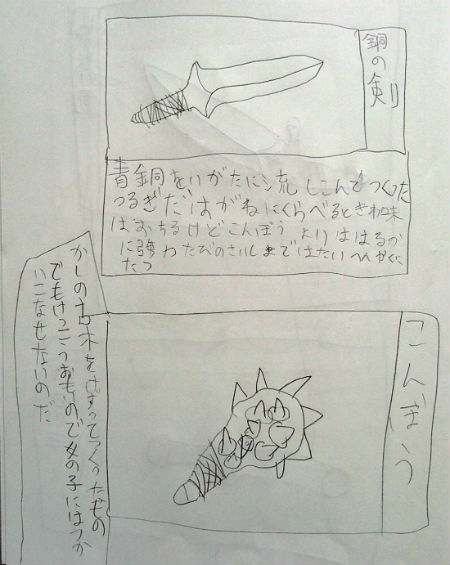 銅の剣
青銅をいがたに流しこんでつくった
つるぎだはがねにくらべるときれ味
はおちるけどこんぼうよりははるか
に強わたびのさいしょまではたいへんやくに
たつ
こんぼう
かしの古木をけずってつくったもの
でもけっこうおもいので女の子にはつか
いこなせないのだ